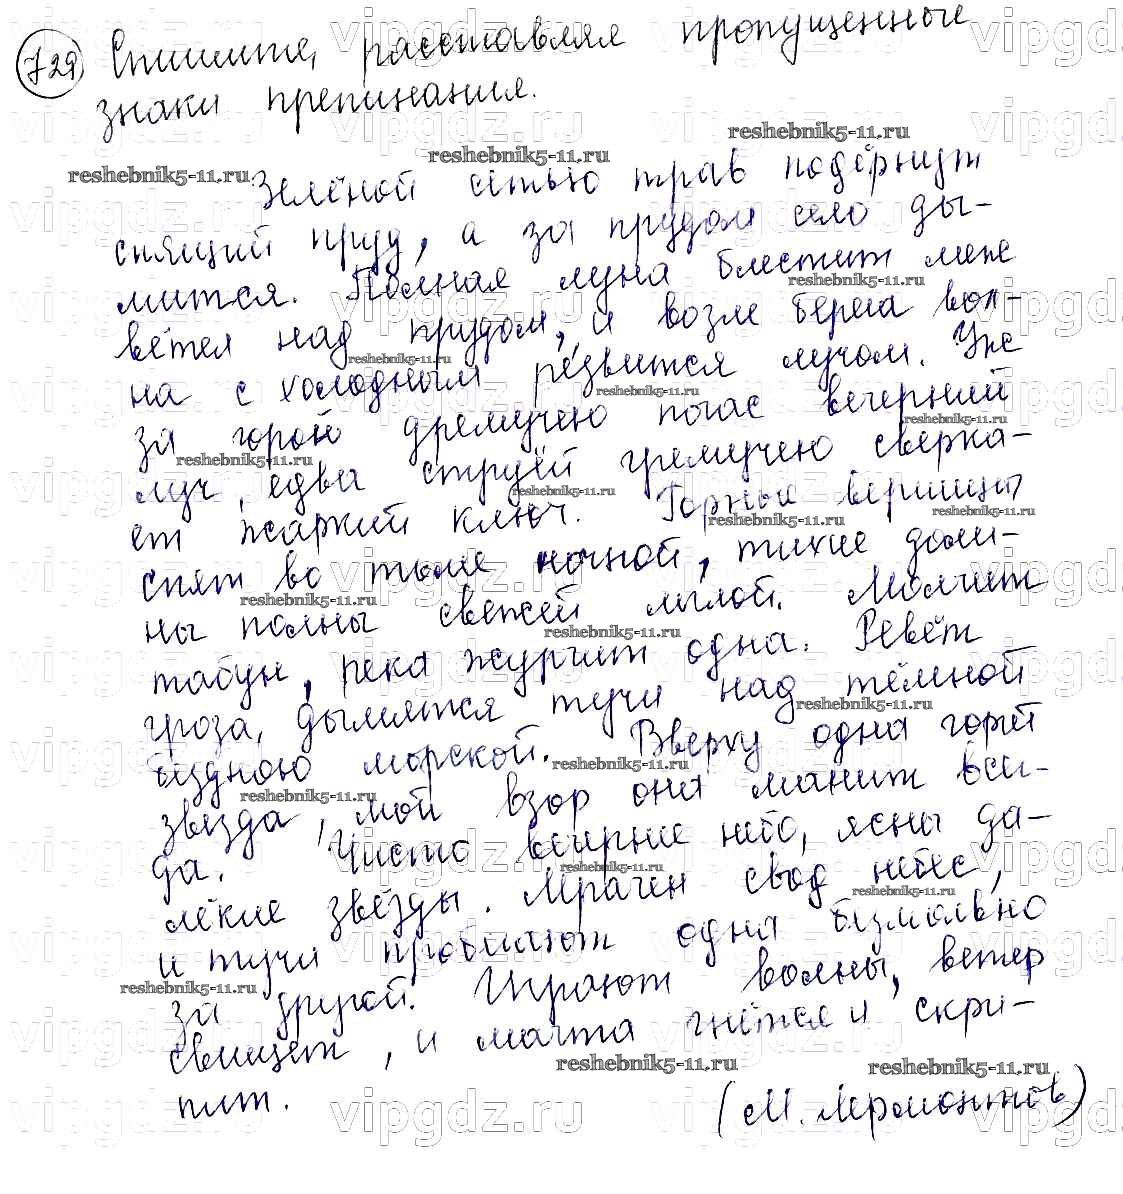 729) Спишите, расставляя пропущенные
знаки препинания.
Зелёной сетью трав подёрнут
спящий пруд, а за прудом село ды-
мится. Полная луна блестит меж
ветел над прудом, и возле берега вол-
на с холодным резвится лучом. Уже
за горой дремучею погас вечерний
луч, едва струёй гремучею сверка-
ет жаркий ключ. Горные вершины
спят во тьме ночной, тихие доли-
ны полны свежей мглой. Молчит
табун, река журчит одна. Ревёт
гроза, дымятся тучи над тёмной
бездною морской. Вверху одна горит
звезда, мой взор она манит всег-
да. Чисто вечернее небо, ясны да-
лёкие звёзды. Мрачен свод небес,
и тучи пробегают одна безмолвно
за другой. Играют волны, ветер
свищет, и мачта гнётся и скри-
пит.
(М. Лермонтов)
vipgdz.ru
reshebnik5-11.ru